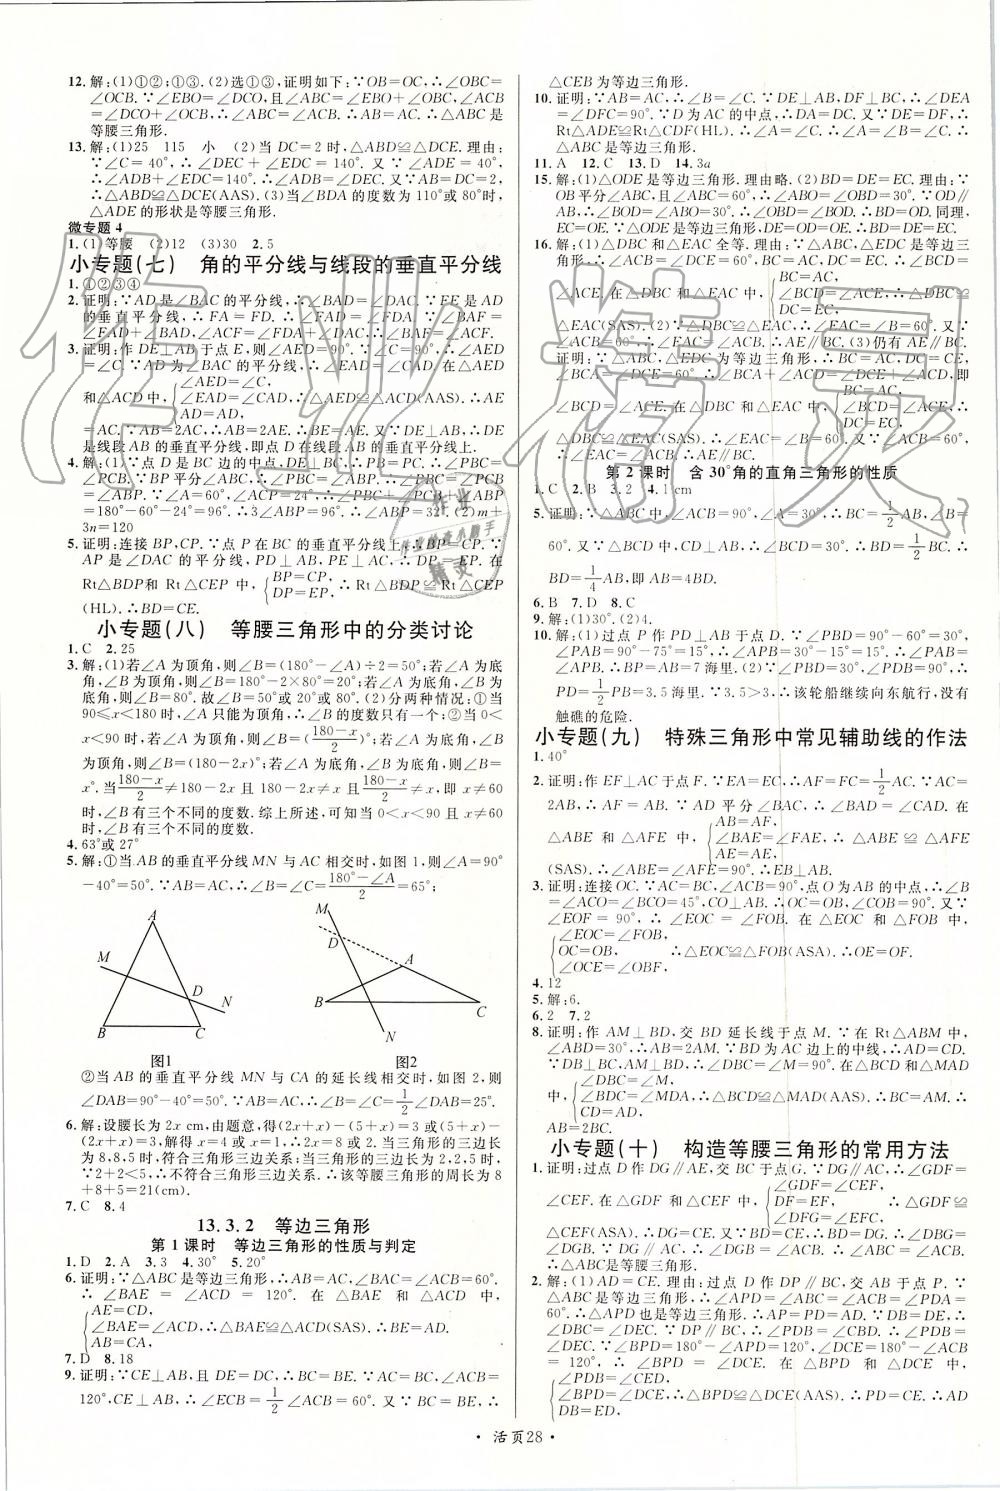 12. 解:(1)①②;①③.(2)选①③,证明如下:∵OB=OC,∴∠OBC=
∠OCB.∵∠EBO=∠DCO,且∠ABC=∠EBO+∠OBC,∠ACB
=∠DCO+∠OCB,∴∠ABC=∠ACB.∴AB=AC.∴△ABC是
等腰三角形.
13. 解:(1)25 115 小 (2)当DC=2时,△ABD≌△DCE.理由:
∵∠C=40°,∴∠DEC+∠EDC=140°.又∵∠ADE=40°,
∴∠ADB+∠EDC=140°.∴∠ADB=∠DEC.又∵AB=DC=
2,∴△ABD≌△DCE(AAS).(3)当∠BDA的度数为110°或80°时,
△ADE的形状是等腰三角形.
微专题4
1. (1)等腰 (2)12 (3)30 2. 5
小专题(七) 角的平分线与线段的垂直平分线
1. ①②③④
2. 证明:∵AD是∠BAC的平分线,∴∠BAD=∠DAC.∵EF是AD
的垂直平分线,∴FA=FD.∴∠FDA=∠FAD.∵∠BAF=
∠FAD+∠BAD,∠ACF=∠FDA+∠DAC,∴∠BAF=∠ACF.
3. 证明:作DE⊥AB于点E,则∠AED=90°.∵∠C=90°,∴∠AED
=∠C.∵AD为∠BAC的平分线,∴∠EAD=∠CAD.在△AED
∠AED=∠C,
和△ACD中,∠EAD=∠CAD,∴△AED≌△ACD(AAS).∴AE
AD=AD,
=AC.∵AB=2AC,∴AB=2AE.又∵DE⊥AB于点E,∴DE
是线段AB的垂直平分线,即点D在线段AB的垂直平分线上.
4. 解:(1)∵点D是BC边的中点,DE⊥BC,∴PB=PC.∴∠PBC
=∠PCB.∵BP平分∠ABC,∴∠PBC=∠ABP.∴∠PBC=
∠PCB=∠ABP.∵∠BAC=60°,∠ACP=24°,∴∠PBC+∠PCB+∠ABP=
180°-60°-24°=96°.∴3∠ABP=96°.∴∠ABP=32°.(2)m+
3n=120
5. 证明:连接BP,CP.∵点P在BC的垂直平分线上,∴BP=CP.∵
AP是∠DAC的平分线,PD⊥AB,PE⊥AC,∴DP=EP.在
Rt△BDP和Rt△CEP中,BP=CP,∴Rt△BDP≌Rt△CEP
DP=EP,
(HL).∴BD=CE.
小专题(八) 等腰三角形中的分类讨论
1. C 2. 25
3. 解:(1)若∠A为顶角,则∠B=(180°-∠A)÷2=50°.若∠A为底
角,∠B为顶角,则∠B=180°-2×80°=20°;若∠A为底角,∠B为底
角,则∠B=80°.故∠B=50°或20°或80°.(2)分两种情况:①当
90≤x<180时,∠A只能为顶角,∴∠B的度数只有一个;②当0<
x<90时,若∠A为顶角,则∠B=(180-x/2)°;若∠A为底角,∠B为
顶角,则∠B=(180-2x)°;若∠A为底角,∠B为底角,则∠B=
x°.当180-x/2≠180-2x且180-2x≠x且180-x/2≠x,即x≠60
时,∠B有三个不同的度数.综上所述,可知当0<x<90且x≠60
时,∠B有三个不同的度数.
4. 63°或27°
5. 解:①当AB的垂直平分线MN与AC相交时,如图1,则∠A=90°
-40°=50°.∵AB=AC,∴∠B=∠C=180°-∠A/2=65°;
A
M
D
N
B
C
图1
M
D
A
B
C
N
图2
②当AB的垂直平分线MN与CA的延长线相交时,如图2,则
∠DAB=90°-40°=50°.∵AB=AC,∴∠B=∠C=1/2∠DAB=25°.
6. 解:设腰长为2x cm,由题意,得(2x+x)-(5+x)=3或(5+x)-
(2x+x)=3,解得x=4或x=1.∴三角形的三边长
为8,8,5时,符合三角形三边关系;当三角形的三边长为2,2,5时,
∵2+2<5,∴不符合三角形三边关系.∴该等腰三角形的周长为
8+8+5=21(cm).
7. C 8. 4
13.3.2 等边三角形
第1课时 等边三角形的性质与判定
1. D 2. A 3. 3 4. 30° 5. 20°
6. 证明:∵△ABC是等边三角形,∴AB=AC,∠BAC=∠ACB=60°.
∴∠BAE=∠ACD=120°.在△BAE和△ACD中,
AE=CD,
∠BAE=∠ACD,∴△BAE≌△ACD(SAS).∴BE=AD.
AB=CA,
7. D 8. 18
9. 证明:∵CE⊥AB,且DE=DC,∴BC=BE.∵AC=BC,∠ACB=
120°,CE⊥AB,∴∠ECB=1/2∠ACB=60°.又∵BC=BE,∴
△CEB为等边三角形.
10. 证明:∵AB=AC,∴∠B=∠C.∵DE⊥AB,DF⊥BC,∴∠DEA
=∠DFC=90°.∵D为AC的中点,∴DA=DC.又∵DE=DF,∴
Rt△ADE≌Rt△CDF(HL).∴∠A=∠C.∴∠A=∠B=∠C.∴
△ABC是等边三角形.
11. A 12. C 13. D 14. 3a
15. 解:(1)△ODE是等边三角形.理由略.(2)BD=DE=EC.理由:∵
OB平分∠ABC,∠ABC=60°,∴∠ABO=∠OBD=30°.∵OD∥
AB,∴∠BOD=∠ABO=30°.∴∠OBD=∠BOD.∴BD=OD.同理,
EC=OE.∵△ODE是等边三角形,∴OD=OE=DE.∴BD=DE=EC.
16. 解:(1)△DBC和△EAC全等.理由:∵∠ACB=60°,∠DCE=
BC=AC,
∠ACE.在△DBC和△EAC中,∠BCD=∠ACE,∴△DBC≌
DC=EC,
△EAC(SAS).(2)∵△DBC≌△EAC,∴∠EAC=∠B=60°.又∵
∠ACB=60°,∴∠EAC=∠ACB.∴AE∥BC.(3)仍有AE∥BC.
证明:∵△ABC,△EDC为等边三角形,∴BC=AC,DC=CE,
∠BCA=∠DCE=60°.∴∠BCA+∠ACD=∠DCE+∠ACD,即
BC=AC,
∠BCD=∠ACE.在△DBC和△EAC中,∠BCD=∠ACE,∴
DC=EC,
△DBC≌△EAC(SAS).∴∠EAC=∠B=60°.又∵∠ACB=60°,
∴∠EAC=∠ACB.∴AE∥BC.
第2课时 含30°角的直角三角形的性质
1. C 2. B 3. 2 4. 1cm
5. 证明:∵∠ACB=90°,∠A=30°,∴BC=1/2AB,∠B=
60°.又∵CD⊥AB,∴∠DCB=30°.∴BD=1/2BC.∴
BD=1/4AB,即AB=4BD.
6. B 7. D 8. C
9. 解:(1)30°.(2)4.
10. 解:(1)过点P作PD⊥AB于点D.∵∠PBD=90°-60°=30°,
∠PAB=90°-75°=15°,∴∠PAB=∠APB=
15°.∴BP=AB=7海里.(2)∵∠PBD=30°,∴
PD=1/2PB=3.5海里.∵3.5>3,∴该轮船继续向东航行,没有
触礁的危险.
小专题(九) 特殊三角形中常见辅助线的作法
1. 40°
2. 证明:作EF⊥AC于点F.∵EA=EC,∴AF=FC=1/2AC.∵AC=
2AB,∴AF=AB.∵AD平分∠BAC,∴∠BAD=∠CAD.在
AB=AF,
△ABE和△AFE中,∠BAE=∠FAE,∴△ABE≌△AFE
AE=AE,
(SAS).∴∠ABE=∠AFE=90°.∴EB⊥AB.
3. 证明:连接OC.∵AC=BC,∠ACB=90°,点O为AB的中点,∴∠B
=∠ACO=∠BCO=45°,CO⊥AB.∴OC=OB,∠COB=90°.又∵
∠EOF=90°,∴∠EOC=∠FOB.在△EOC和△FOB中,
∠EOC=∠FOB,
OC=OB,∴△EOC≌△FOB(ASA).∴OE=OF.
∠OCE=∠OBF,
4. 12
5. 解:6.
6. 2 7. 2
8. 证明:作AM⊥BD,交BD延长线于点M.∵在Rt△ABM中,
∠ABD=30°,∴AB=2AM.∵BD为AC边上的中线,∴AD=CD.
∵DB⊥BC,AM⊥BD,∴∠DBC=∠M=90°.在△BCD和△MAD
∠DBC=∠M,
中,∠BDC=∠MDA,∴△BCD≌△MAD(AAS).∴BC=AM.
DC=DA,
∴AB=2BC.
小专题(十) 构造等腰三角形的常用方法
1. 证明:过点D作DG∥AE,交BC于点G.∵DG∥AC,∴∠GDF=
∠GDF=∠CEF,
∠CEF.在△GDF和△CEF中,DF=EF,∴△GDF≌
∠DFG=∠EFC,
△CEF(ASA).∴DG=CE.又∵BD=CE,∴BD=DG.∴
∠DBG=∠DGB.∵DG∥AC,∴∠DGB=∠ACB.∴∠ABC=
∠ACB.∴△ABC是等腰三角形.
2. 解:(1)AD=CE.理由:过点D作DP∥BC,交AB于点P.∵
△ABC是等边三角形,∴∠APD=∠ABC=∠ACB=∠PDA=
60°.∴△APD也是等边三角形.∴AP=PD=AD.∵DB=DE,∴
∠DBC=∠DEC.∵DP∥BC,∴∠PDB=∠CBD.∴∠PDB=
∠DEC.∵∠BPD=180°-∠APD=120°,∠DCE=180°-∠ACB
=120°,∴∠BPD=∠DCE.在△BPD和△DCE中,
∠PDB=∠CED,
∠BPD=∠DCE,∴△BPD≌△DCE(AAS).∴PD=CE.∴AD
DB=ED,
=CE.
• 活页28 •
作业精灵